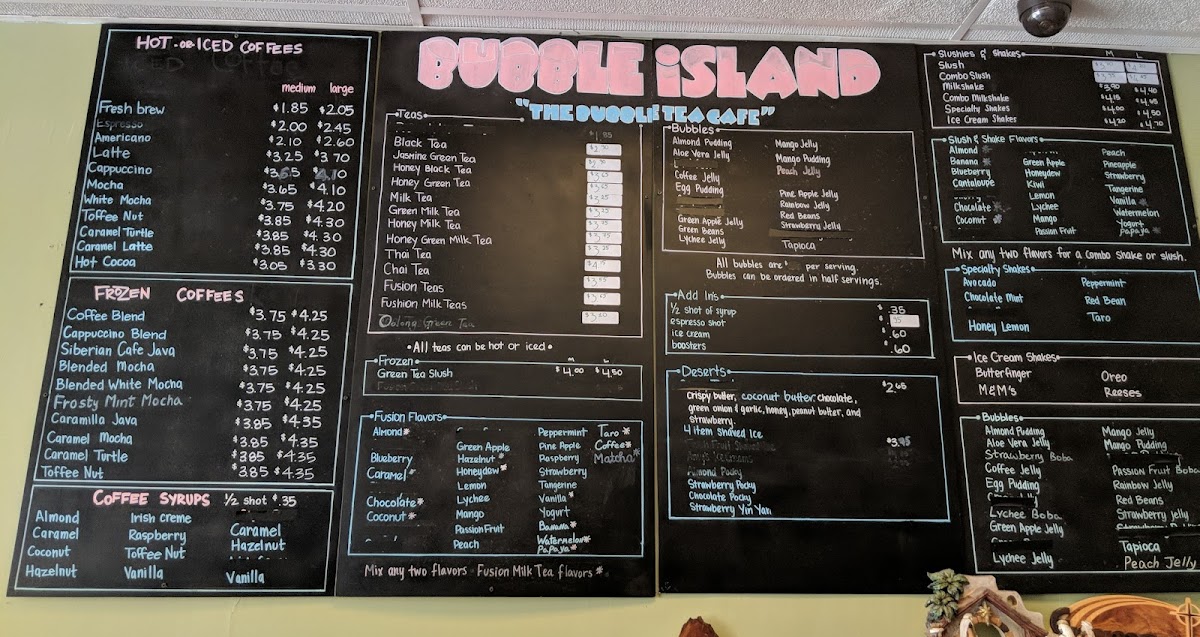 HOT or ICED COFFEES
medium large
Fresh brew $1.85 $2.05
Espresso $2.00 $2.45
Americano $2.10 $2.60
Latte $3.25 $3.70
Cappuccino
Mocha $3.65 $4.10
White Mocha $3.75 $4.20
Toffee Nut $3.85 $4.30
Caramel Turtle $3.85 $4.30
Caramel Latte $3.85 $4.30
Hot Cocoa $3.05 $3.30
FROZEN COFFEES
Coffee Blend $3.75 $4.25
Cappuccino Blend $3.75 $4.25
Siberian Cafe Java $3.75 $4.25
Blended Mocha $3.75 $4.25
Blended White Mocha $3.75 $4.25
Frosty Mint Mocha $3.75 $4.25
Caramilla Java $3.85 $4.35
Caramel Mocha $3.85 $4.35
Caramel Turtle $3.85 $4.35
Toffee Nut $3.85 $4.35
COFFEE SYRUPS ½ shot $.35
Almond Irish creme
Caramel Raspberry Caramel
Coconut Toffee Nut Hazelnut
Hazelnut Vanilla Vanilla
BUBBLE iSLAND
"THE BUBBLE TEA CAFE"
Teas
Black Tea
Jasmine Green Tea
Honey Black Tea
Honey Green Tea
Milk Tea
Green Milk Tea
Honey Milk Tea
Honey Green Milk Tea
Thai Tea
Chai Tea
Fusion Teas
Fushion Milk Teas
Oolong Green Tea
• All teas can be hot or iced •
Frozen M L
Green Tea Slush $4.00 $4.50
Fusion Flavors
Almond* Peppermint Taro*
Green Apple Pine Apple Coffee*
Blueberry Hazelnut* Raspberry Matcha*
Caramel* Honeydew* Strawberry
Lemon Tangerine
Chocolate* Lychee Vanilla*
Coconut* Mango Yogurt
Passion Fruit Banana*
Peach Watermelon*
Papaya*
Mix any two flavors Fusion Milk Tea flavors*
Bubbles
Almond Pudding Mango Jelly
Aloe Vera Jelly Mango Pudding
Peach Jelly
Coffee Jelly
Egg Pudding Pine Apple Jelly
Rainbow Jelly
Green Apple Jelly Red Beans
Green Beans Strawberry Jelly
Lychee Jelly Tapioca
All bubbles are per serving.
Bubbles can be ordered in half servings.
Add Ins
½ shot of syrup $.35
espresso shot
ice cream $.60
boosters $.60
Deserts
$2.65
crispy butter, coconut butter, chocolate,
green onion & garlic, honey, peanut butter, and
strawberry.
4 item shaved Ice
Almond Pocky
Strawberry Pocky
Chocolate Pocky
Strawberry Yan Yan
Slushies & Shakes M L
Slush
Combo Slush
Milkshake $3.90 $4.40
Combo Milkshake
Specialty Shakes $4.00 $4.50
Ice Cream Shakes $4.20 $4.70
Slush & Shake Flavors
Almond Peach
Banana Green Apple Pineapple
Blueberry Honeydew Strawberry
Cantaloupe Kiwi Tangerine
Lemon Vanilla
Chocolate Lychee Watermelon
Coconut Mango Yogurt
Passion Fruit Papaya
Mix any two flavors for a combo shake or slush.
Specialty Shakes
Avocado Peppermint
Chocolate Mint Red Bean
Taro
Honey Lemon
Ice Cream Shakes
Butterfinger Oreo
M&M's Reeses
Bubbles
Almond Pudding Mango Jelly
Aloe Vera Jelly Mango Pudding
Strawberry Boba
Coffee Jelly Passion Fruit Boba
Egg Pudding Rainbow Jelly
Red Beans
Lychee Boba Strawberry Jelly
Green Apple Jelly
Tapioca
Lychee Jelly Peach Jelly